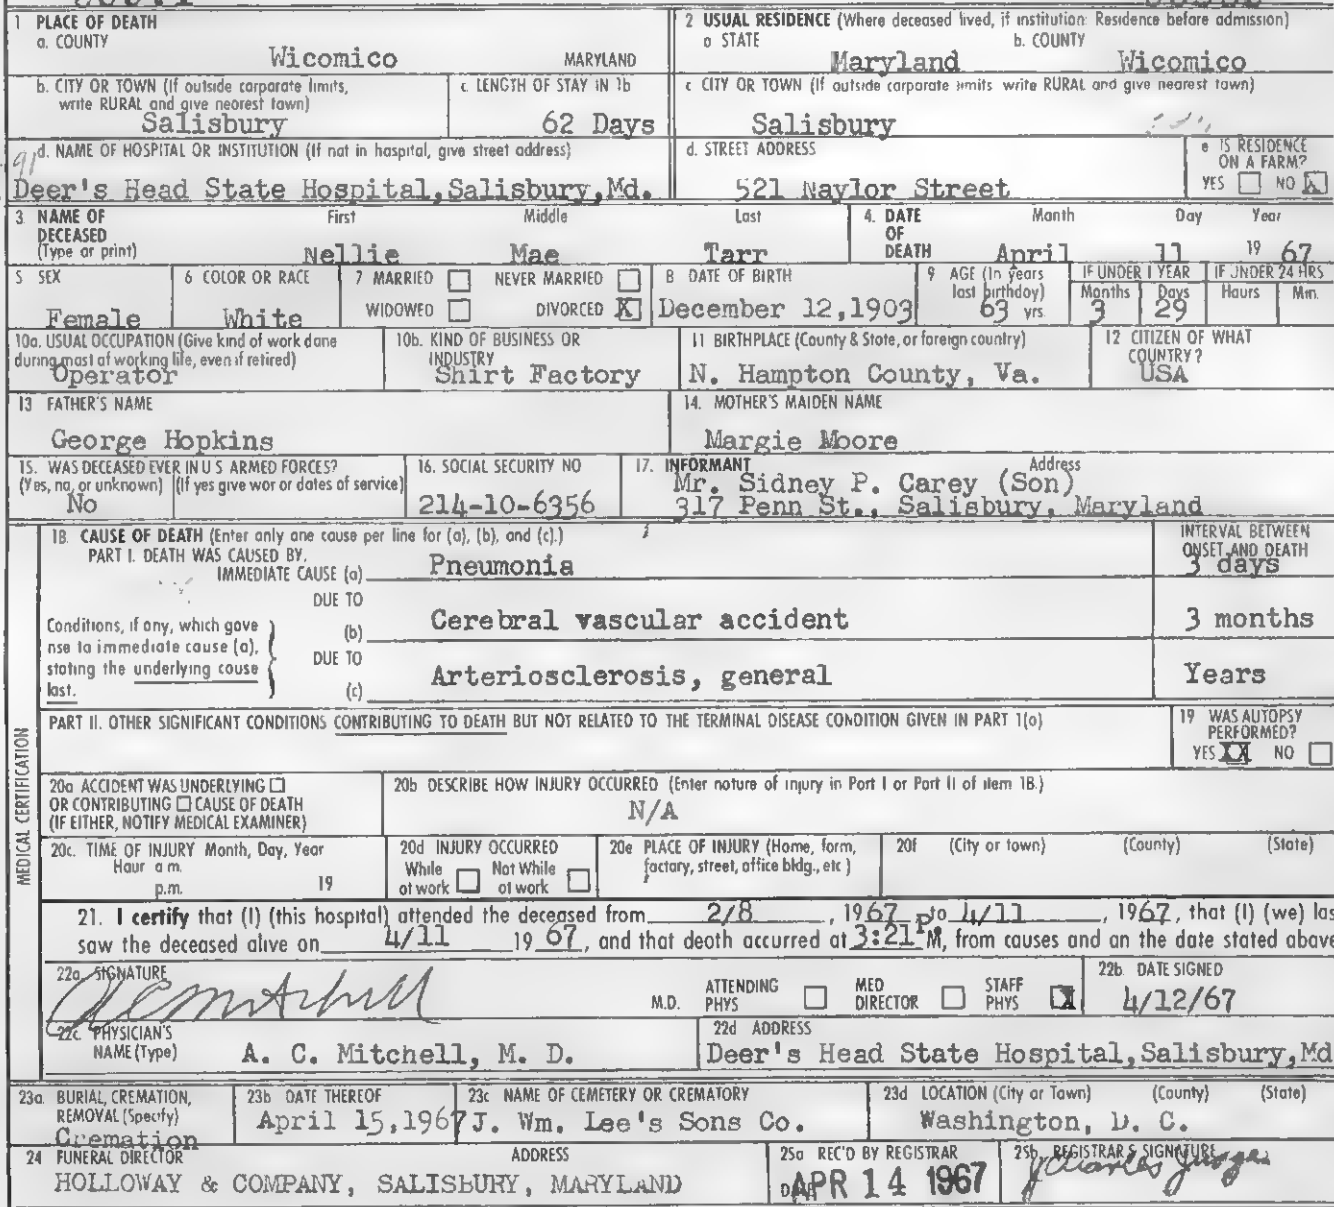 1 PLACE OF DEATH
a. COUNTY
Wicomico MARYLAND
2 USUAL RESIDENCE (Where deceased lived, if institution: Residence before admission)
a STATE b. COUNTY
Maryland Wicomico
b. CITY OR TOWN (If outside corporate limits, write RURAL and give nearest town)
Salisbury
c. LENGTH OF STAY IN 1b
62 Days
c CITY OR TOWN (If outside corporate limits write RURAL and give nearest town)
Salisbury
d. NAME OF HOSPITAL OR INSTITUTION (If not in hospital, give street address)
Deer's Head State Hospital,Salisbury,Md.
d. STREET ADDRESS
521 Naylor Street
e IS RESIDENCE ON A FARM?
YES NO X
3 NAME OF DECEASED (Type or print)
First Middle Last
Nellie Mae Tarr
4. DATE OF DEATH
Month Day Year
April 11 19 67
5 SEX
Female
6 COLOR OR RACE
White
7 MARRIED NEVER MARRIED
WIDOWED DIVORCED X
8 DATE OF BIRTH
December 12,1903
9 AGE (In years last birthday)
63 yrs
IF UNDER 1 YEAR
Months Days
3 29
IF UNDER 24 HRS
Hours Min.
10a. USUAL OCCUPATION (Give kind of work done during most of working life, even if retired)
Operator
10b. KIND OF BUSINESS OR INDUSTRY
Shirt Factory
11 BIRTHPLACE (County & State, or foreign country)
N. Hampton County, Va.
12 CITIZEN OF WHAT COUNTRY?
USA
13 FATHER'S NAME
George Hopkins
14. MOTHER'S MAIDEN NAME
Margie Moore
15. WAS DECEASED EVER IN U S ARMED FORCES?
(Yes, no, or unknown) (If yes give war or dates of service)
No
16. SOCIAL SECURITY NO
214-10-6356
17. INFORMANT Address
Mr. Sidney P. Carey (Son)
317 Penn St., Salisbury, Maryland
MEDICAL CERTIFICATION
18. CAUSE OF DEATH (Enter only one cause per line for (a), (b), and (c).)
INTERVAL BETWEEN ONSET AND DEATH
PART I. DEATH WAS CAUSED BY.
IMMEDIATE CAUSE (a) Pneumonia 3 days
DUE TO
(b) Cerebral vascular accident 3 months
Conditions, if any, which gave rise to immediate cause (a), stating the underlying cause last.
DUE TO
(c) Arteriosclerosis, general Years
PART II. OTHER SIGNIFICANT CONDITIONS CONTRIBUTING TO DEATH BUT NOT RELATED TO THE TERMINAL DISEASE CONDITION GIVEN IN PART 1(a)
19 WAS AUTOPSY PERFORMED?
YES XX NO
20a ACCIDENT WAS UNDERLYING
OR CONTRIBUTING CAUSE OF DEATH
(IF EITHER, NOTIFY MEDICAL EXAMINER)
20b DESCRIBE HOW INJURY OCCURRED (Enter nature of injury in Part I or Part II of item 18.)
N/A
20c. TIME OF INJURY Month, Day, Year
Hour a m.
p.m. 19
20d INJURY OCCURRED
While at work Not While at work
20e PLACE OF INJURY (Home, form, factory, street, office bldg., etc )
20f (City or town) (County) (State)
21. I certify that (I) (this hospital) attended the deceased from 2/8, 1967 to 4/11, 1967, that (I) (we) las
saw the deceased alive on 4/11 19 67, and that death occurred at 3:21 P M, from causes and on the date stated above
22a. SIGNATURE
A C Mitchell M.D.
ATTENDING PHYS MED DIRECTOR STAFF PHYS X
22b. DATE SIGNED
4/12/67
22c. PHYSICIAN'S NAME (Type)
A. C. Mitchell, M. D.
22d ADDRESS
Deer's Head State Hospital,Salisbury,Md
23a. BURIAL, CREMATION, REMOVAL (Specify)
Cremation
23b DATE THEREOF
April 15,1967
23c NAME OF CEMETERY OR CREMATORY
J. Wm. Lee's Sons Co.
23d LOCATION (City or Town) (County) (State)
Washington, D. C.
24 FUNERAL DIRECTOR ADDRESS
HOLLOWAY & COMPANY, SALISBURY, MARYLAND
25a REC'D BY REGISTRAR
APR 14 1967
25b. REGISTRAR'S SIGNATURE
J Charles Judge